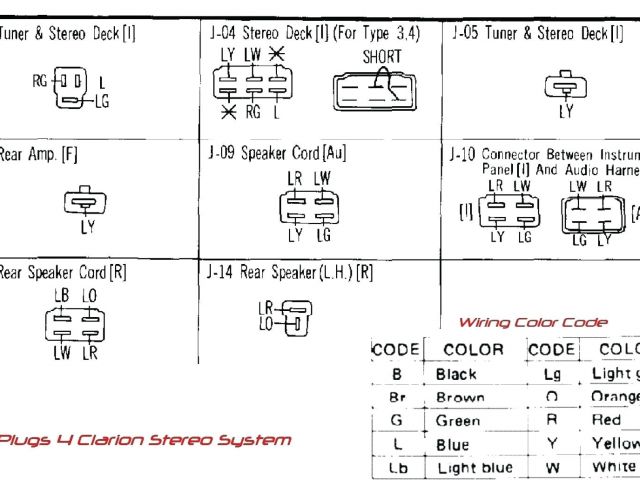 Tuner & Stereo Deck[I]
RG
L
LG
J-04 Stereo Deck[I](For Type 3,4)
LY LW
RG L
SHORT
J-05 Tuner & Stereo Deck[I]
LY
Rear Amp.[F]
LY
J-09 Speaker Cord[Au]
LR LW
LY LG
J-10 Connector Between Instrum
Panel[I] And Audio Harne
LR LW
[I]
LY LG
LW LR
LG LY
[A
Rear Speaker Cord[R]
LB LO
LW LR
J-14 Rear Speaker(L.H.)[R]
LR
LO
Wiring Color Code
CODE COLOR CODE COLO
B Black Lg Light g
Br Brown O Orange
G Green R Red
L Blue Y Yellow
Lb Light blue W White
Plugs 4 Clarion Stereo System